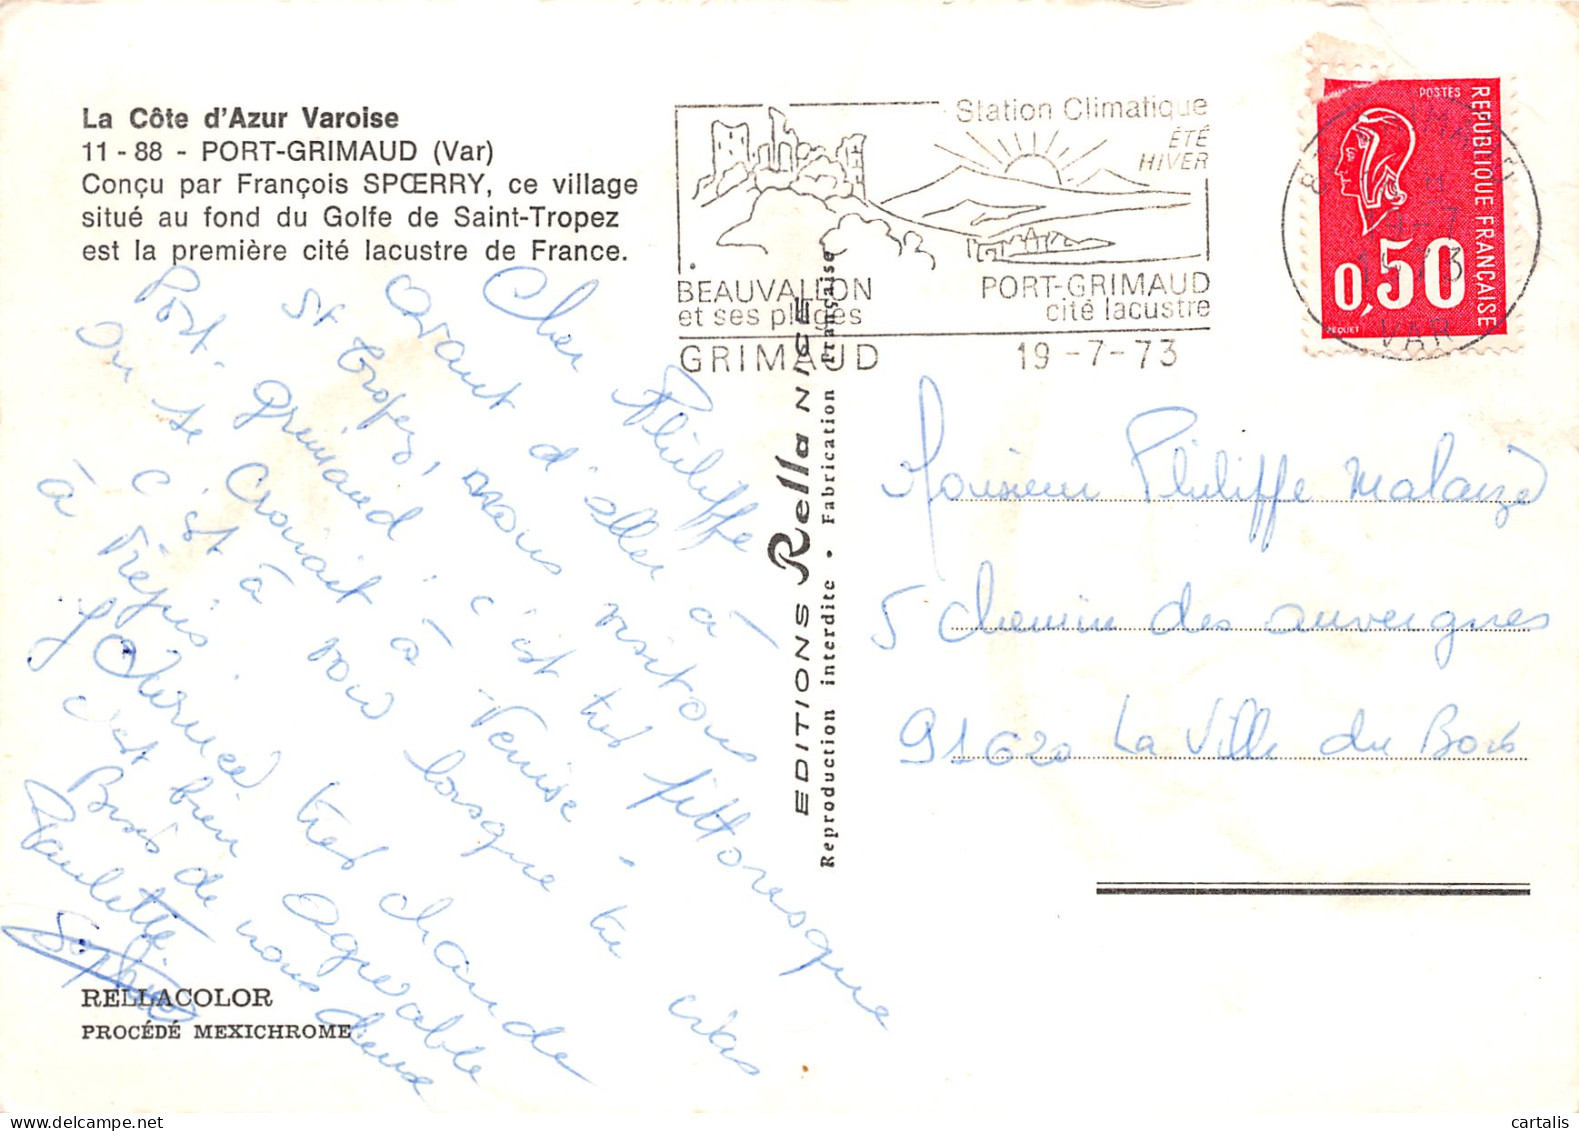 La Côte d'Azur Varoise
11 - 88 - PORT-GRIMAUD (Var)
Conçu par François SPŒRRY, ce village
situé au fond du Golfe de Saint-Tropez
est la première cité lacustre de France.
Cher Philiffe
Avant d'aller à
St Tropez, nous visitons
Port-Grimaud, c'est très pittoresque
On se croirait à Venise -
c'est à voir lorsque tu
à Fréjus
très chaude
c'est bien agréable
Bises de nous deux
Paulette
Sophie
RELLACOLOR
PROCÉDÉ MEXICHROME
EDITIONS Rella NICE
Reproduction interdite • Fabrication Française
Station Climatique
ÉTÉ
HIVER
BEAUVALLON
et ses plages
PORT-GRIMAUD
cité lacustre
GRIMAUD 19-7-73
POSTES
REPUBLIQUE FRANÇAISE
0,50
PEQUET
VAR
Monsieur Philiffe Malaizé
5 chemin des auvergnes
91620 La Ville du Bois
cartalis